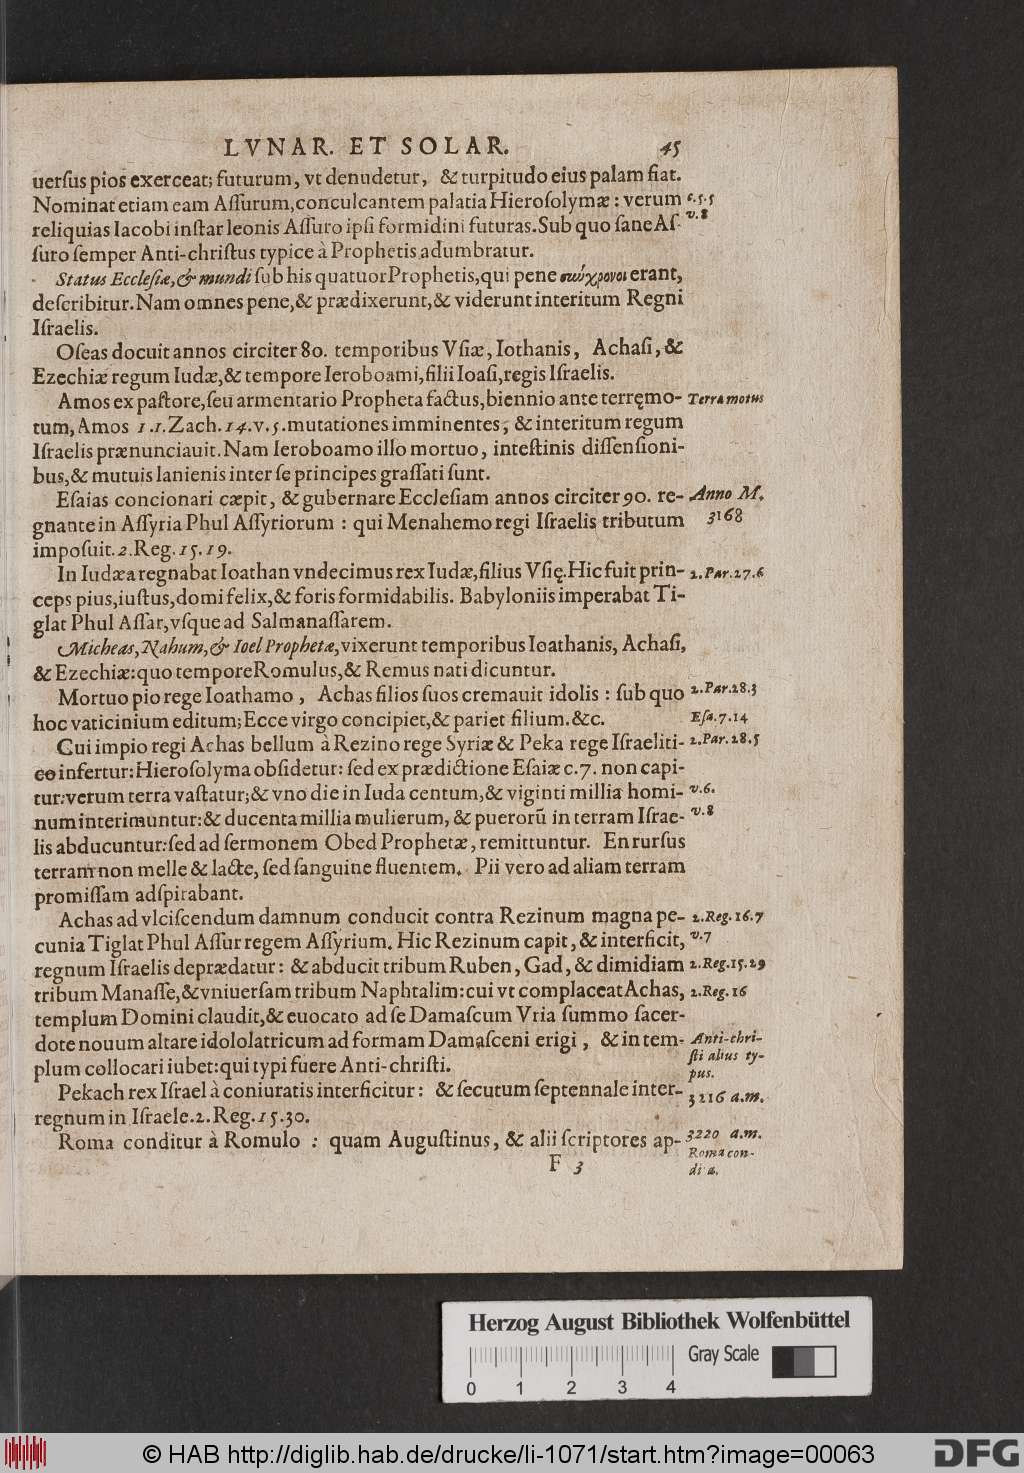 LVNAR. ET SOLAR. 45
uerſus pios exerceat; futurum, vt denudetur, & turpitudo eius palam fiat.
Nominat etiam eam Aſſurum, conculcantem palatia Hieroſolymæ: verum c.5.5
reliquias Iacobi inſtar leonis Aſſuro ipſi formidini futuras. Sub quo ſane Aſ- v.8
ſuro ſemper Anti-chriſtus typice à Prophetis adumbratur.
Status Eccleſiæ, & mundi ſub his quatuor Prophetis, qui pene σύγχρονοι erant,
deſcribitur. Nam omnes pene, & prædixerunt, & viderunt interitum Regni
Iſraelis.
Oſeas docuit annos circiter 80. temporibus Vſiæ, Iothanis, Achaſi, &
Ezechiæ regum Iudæ, & tempore Ieroboami, filii Ioaſi, regis Iſraelis.
Amos ex paſtore, ſeu armentario Propheta factus, biennio ante terręmo- Terræ motus
tum, Amos 1.1. Zach. 14. v. 5. mutationes imminentes, & interitum regum
Iſraelis prænunciauit. Nam Ieroboamo illo mortuo, inteſtinis diſſenſioni-
bus, & mutuis lanienis inter ſe principes graſſati ſunt.
Eſaias concionari cæpit, & gubernare Eccleſiam annos circiter 90. re- Anno M.
gnante in Aſſyria Phul Aſſyriorum: qui Menahemo regi Iſraelis tributum 3168
impoſuit. 2. Reg. 15. 19.
In Iudæa regnabat Ioathan vndecimus rex Iudæ, filius Vſię. Hic fuit prin- 2. Par. 27. 6
ceps pius, iuſtus, domi felix, & foris formidabilis. Babyloniis imperabat Ti-
glat Phul Aſſar, vſque ad Salmanaſſarem.
Micheas, Nahum, & Ioel Prophetæ, vixerunt temporibus Ioathanis, Achaſi,
& Ezechiæ: quo tempore Romulus, & Remus nati dicuntur.
Mortuo pio rege Ioathamo, Achas filios ſuos cremauit idolis: ſub quo 2. Par. 28. 3
hoc vaticinium editum; Ecce virgo concipiet, & pariet filium. &c. Eſa. 7. 14
Cui impio regi Achas bellum à Rezino rege Syriæ & Peka rege Iſraeliti- 2. Par. 28. 5
co infertur: Hieroſolyma obſidetur: ſed ex prædictione Eſaiæ c. 7. non capi-
tur: verum terra vaſtatur; & vno die in Iuda centum, & viginti millia homi- v. 6.
num interimuntur: & ducenta millia mulierum, & puerorũ in terram Iſrae- v. 8
lis abducuntur: ſed ad ſermonem Obed Prophetæ, remittuntur. En rurſus
terram non melle & lacte, ſed ſanguine fluentem. Pii vero ad aliam terram
promiſſam adſpirabant.
Achas ad vlciſcendum damnum conducit contra Rezinum magna pe- 2. Reg. 16. 7
cunia Tiglat Phul Aſſur regem Aſſyrium. Hic Rezinum capit, & interficit, v. 7
regnum Iſraelis deprædatur: & abducit tribum Ruben, Gad, & dimidiam 2. Reg. 15. 29
tribum Manaſſe, & vniuerſam tribum Naphtalim: cui vt complaceat Achas, 2. Reg. 16
templum Domini claudit, & euocato ad ſe Damaſcum Vria ſummo ſacer-
dote nouum altare idololatricum ad formam Damaſceni erigi, & in tem- Anti-chri-
plum collocari iubet: qui typi fuere Anti-chriſti. ſti alius ty-
pus.
Pekach rex Iſrael à coniuratis interficitur: & ſecutum ſeptennale inter- 3216 a.m.
regnum in Iſraele. 2. Reg. 15. 30.
Roma conditur à Romulo: quam Auguſtinus, & alii ſcriptores ap- 3220 a.m.
Roma con-
F 3 di a.
Herzog August Bibliothek Wolfenbüttel
Gray Scale
0 1 2 3 4
© HAB http://diglib.hab.de/drucke/li-1071/start.htm?image=00063
DFG